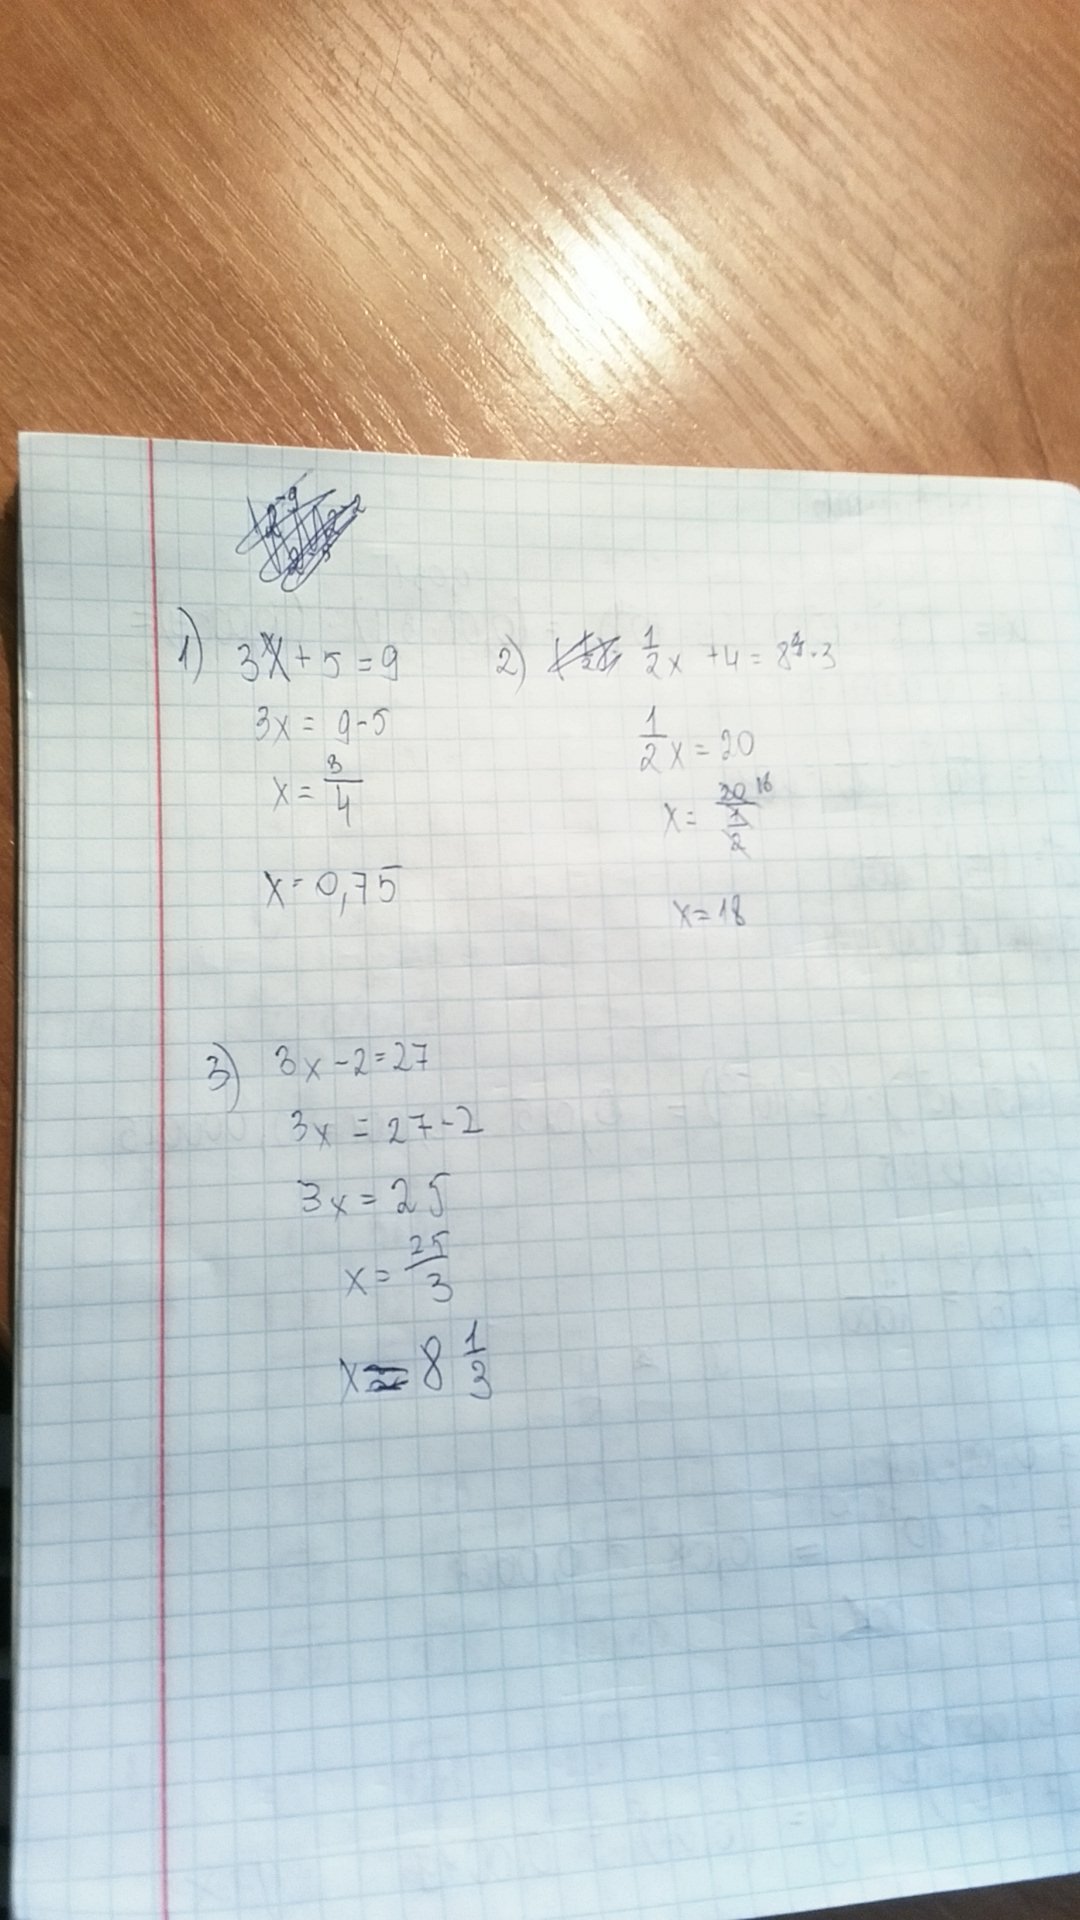 1) 3x + 5 = 9
3x = 9 - 5
x = 3/4
x = 0,75
2) 1/2 x + 4 = 8 · 3
1/2 x = 20
x = 20/(1/2) 18
x = 18
3) 3x - 2 = 27
3x = 27 - 2
3x = 25
x = 25/3
x = 8 1/3